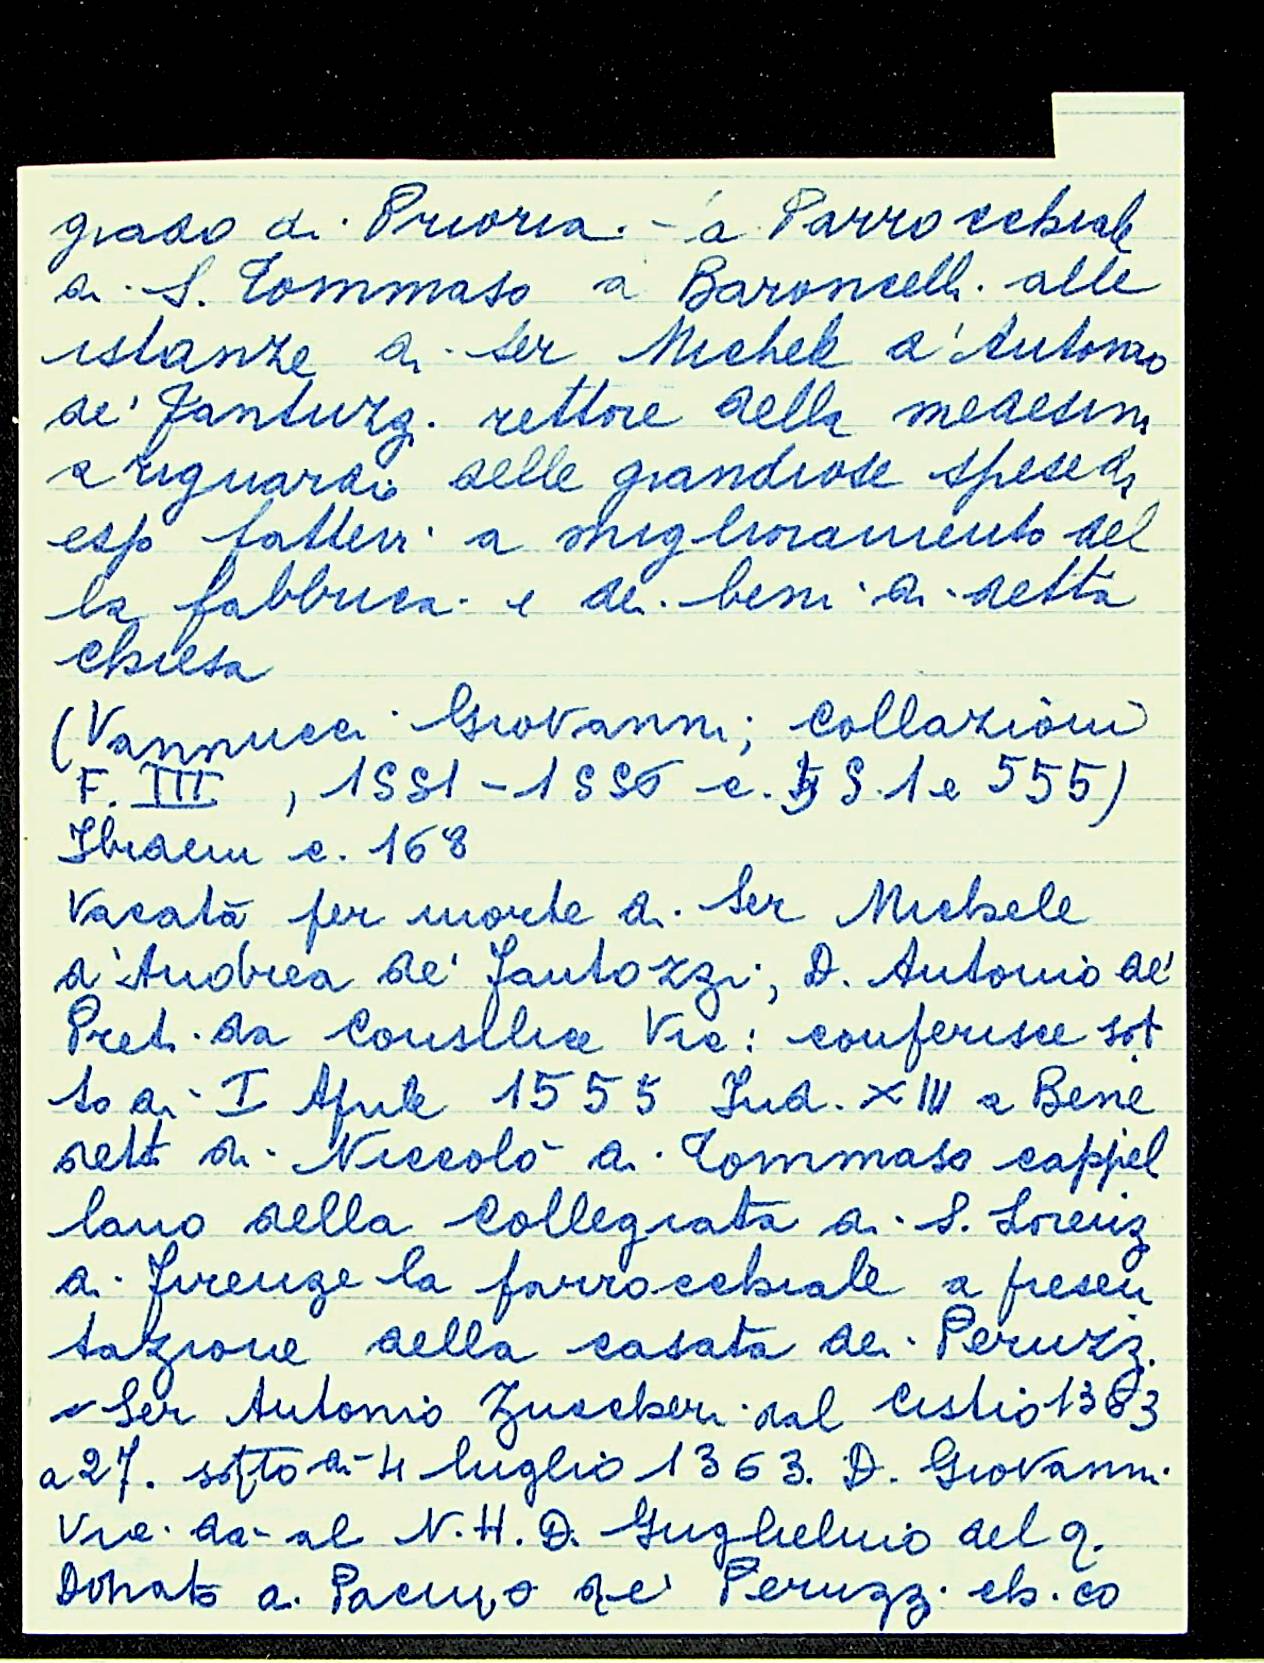 grado di Prioria - a Parrocchiale
di S. Tommaso a Baroncelli alle
istanze di Ser Michele d'Antonio
de' Fantuzzi rettore della medesim
a riguardo delle grandiose spese di
esso fattevi a miglioramento del
la fabbrica e dei beni di detta
chiesa
(Vannucci Giovanni; Collazioni
F. III , 1551-1556 c. 1 e 555)
Ibidem c. 168
Vacata per morte di Ser Michele
d'Andrea de' Fantozzi; D. Antonio de'
Preti da Vic: conferisce sot
to di I Aprile 1555 Ind. XIII a Bene
dett di Niccolò di Tommaso cappel
lano della Collegiata di S. Lorenz
di Firenze la parrocchiale a presen
tazione della casata dei Peruzzi.
- Ser Antonio Zuccheri dal 1363
a 27. sotto dì 4 luglio 1363. D. Giovanni
Vic. dà al N.H. D. Guglielmo del q.
Donato di Pacino de' Peruzzi ch. co